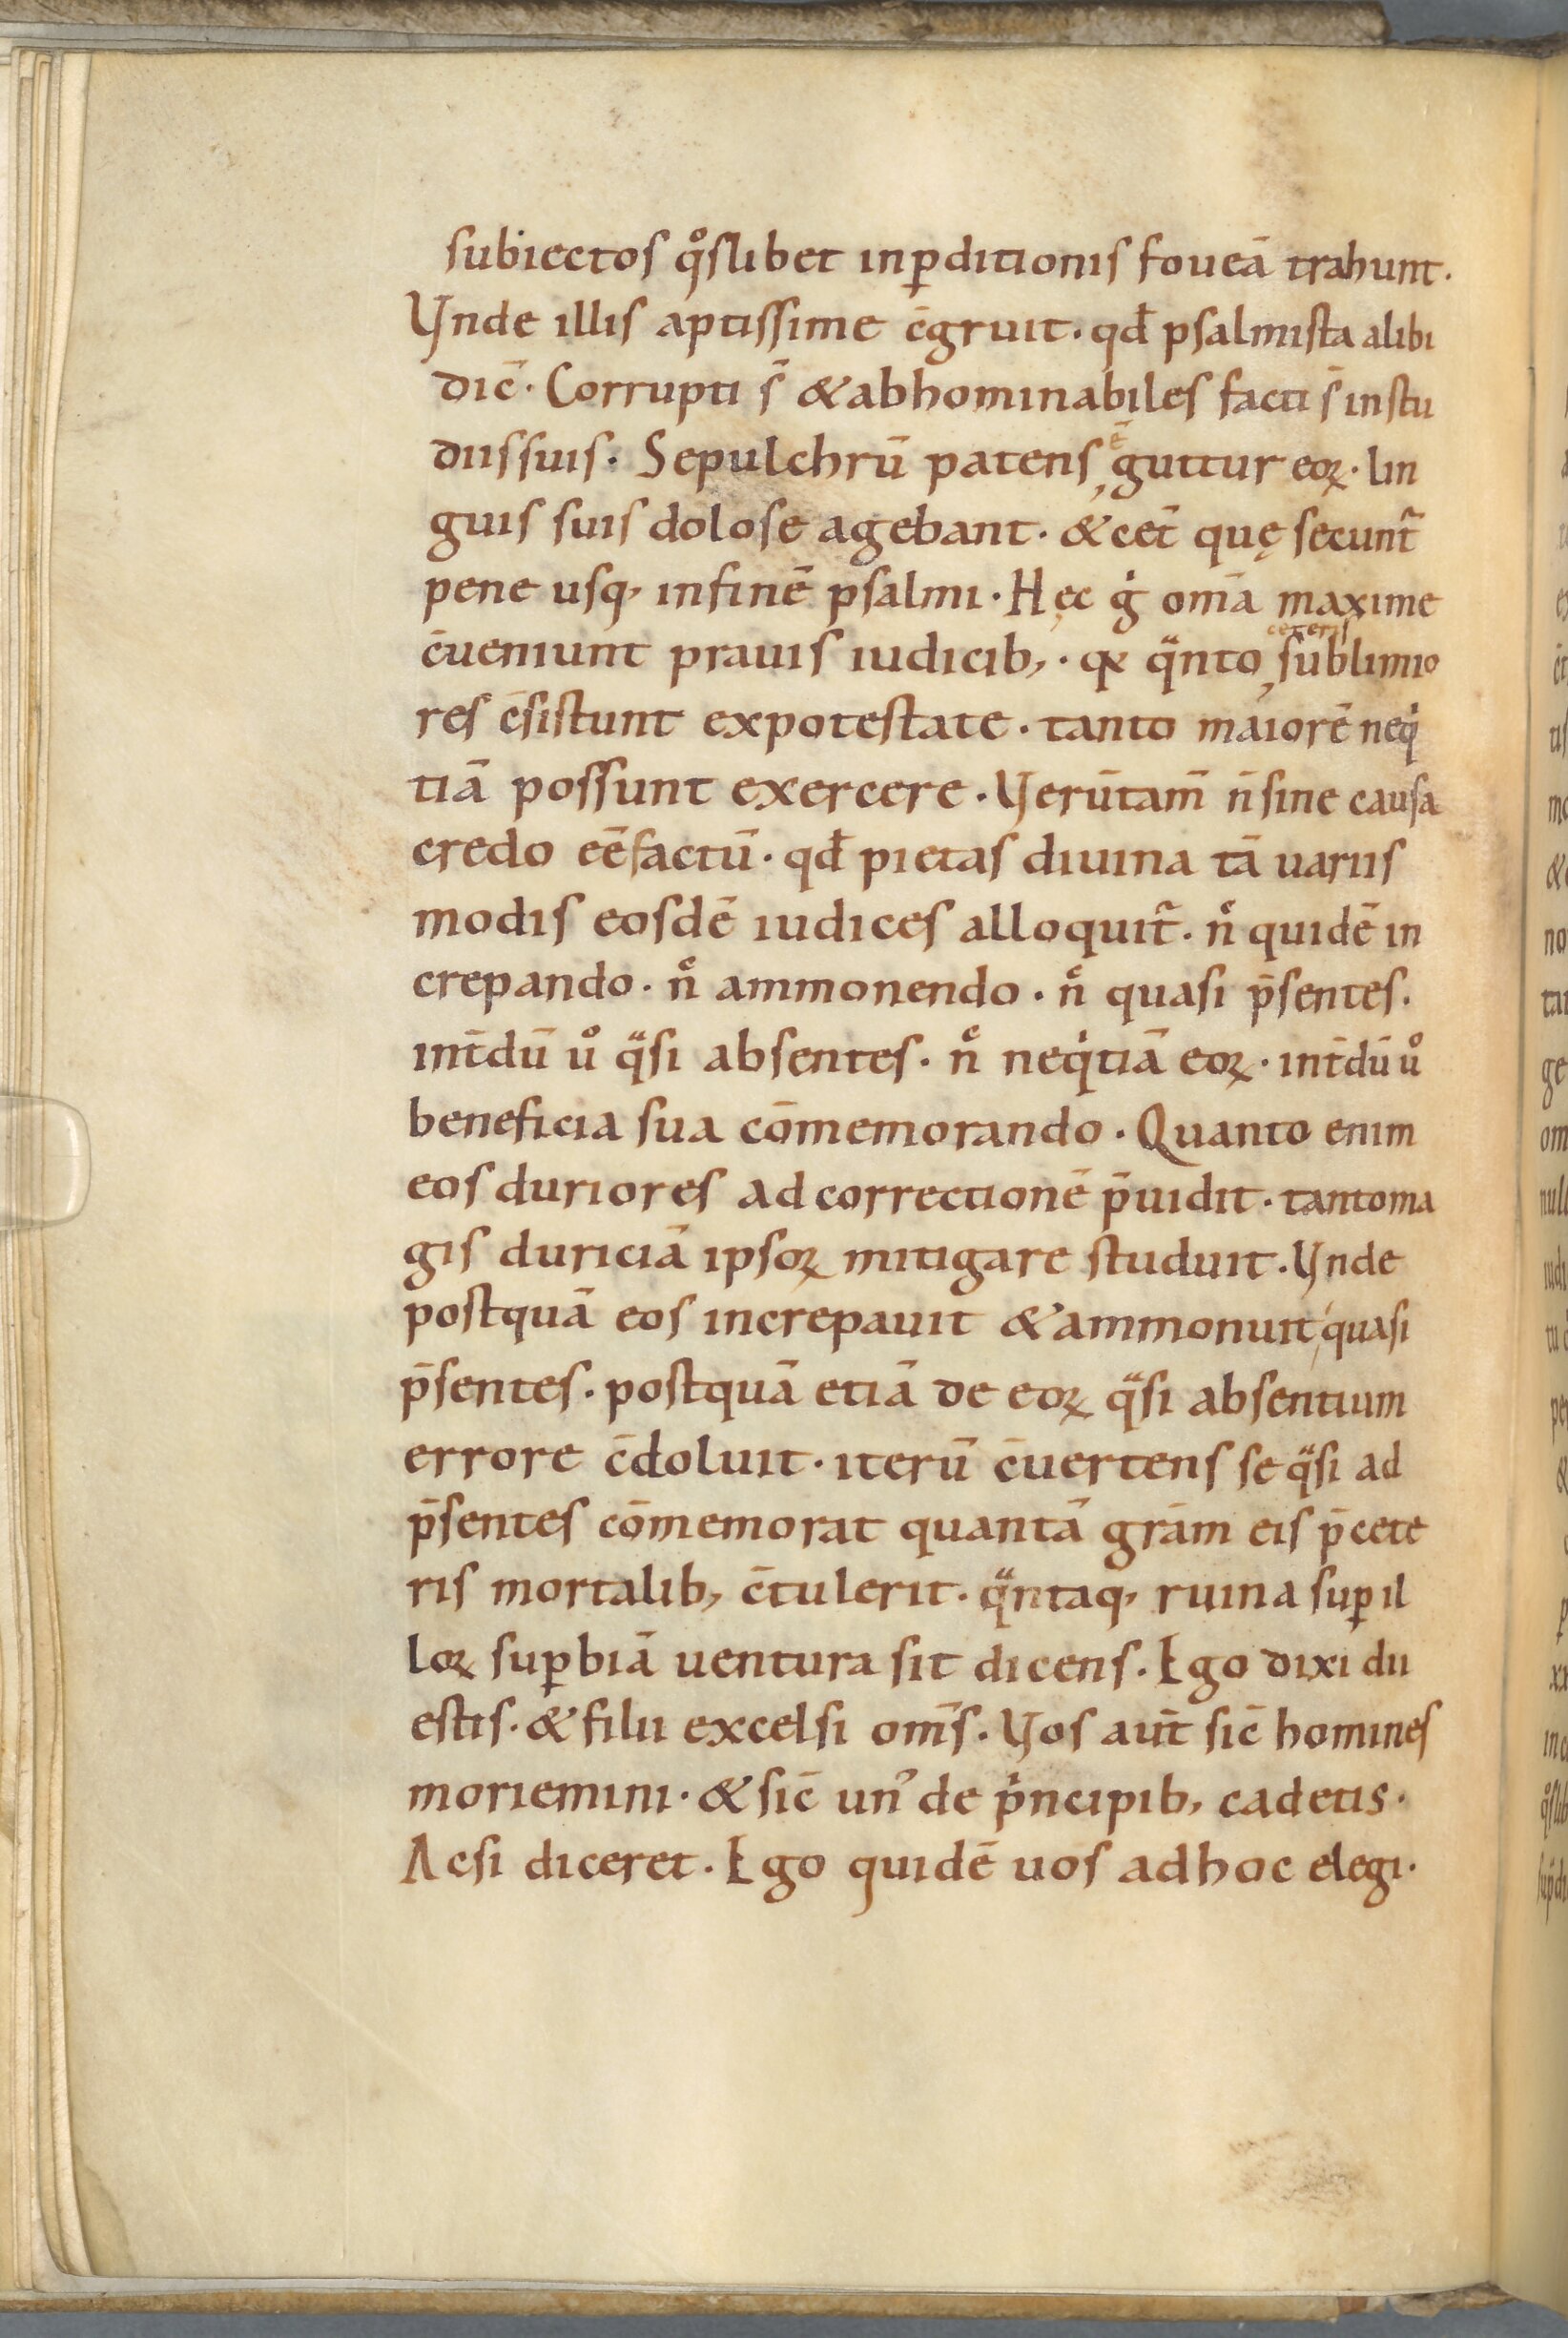 subiectos qͦslibet inꝑditionis foueā trahunt.
Vnde illis aptissime c̄gruit · qđ psalmista alibi
dic̄ · Corrupti s̄ & abhominabiles facti s̄ instu
diis suis · Sepulchrū patens ē guttur eoꝝ · lin
guis suis dolose agebant · & cet̄ quę secunt̃
pene usq, infinē psalmi · Hęc gͥ om̄a maxime
c̄ueniunt prauis iudicib, · qꝛ qᷓnto ceteris sublimio
res c̄sistunt expotestate · tanto maiorē neqͥ
tiā possunt exercere · Verūtam̄ n̄ sine causa
credo eē factū · qđ pietas diuina tā uariis
modis eosdē iudices alloquit̃ · nͨ quidē in
crepando · nͨ ammonendo · nͨ quasi p̄sentes ·
int̄dū uͦ qᷓsi absentes · nͨ neqͥtiā eoꝝ · int̄dū uͦ
beneficia sua cōmemorando · Quanto enim
eos duriores ad correctionē p̄uidit · tantoma
gis duriciā ipsoꝝ mitigare studuit · Vnde
postquā eos increpauit & ammonuit quasi
p̄sentes · postquā etiā de eoꝝ qᷓsi absentium
errore c̄doluit · iterū c̄uertens se qᷓsi ad
p̄sentes cōmemorat quantā grām eis p̄ cete
ris mortalib, c̄tulerit · qᷓntaq, ruina suꝑ il
loꝝ suꝑbiā uentura sit dicens · Ego dixi dii
estis · & filii excelsi om̄s · Vos aut̄ sic̄ homines
moriemini · & sic̄ un᾽ de pͥncipib, cadetis ·
Acsi diceret · Ego quidē uos adhoc elegi ·